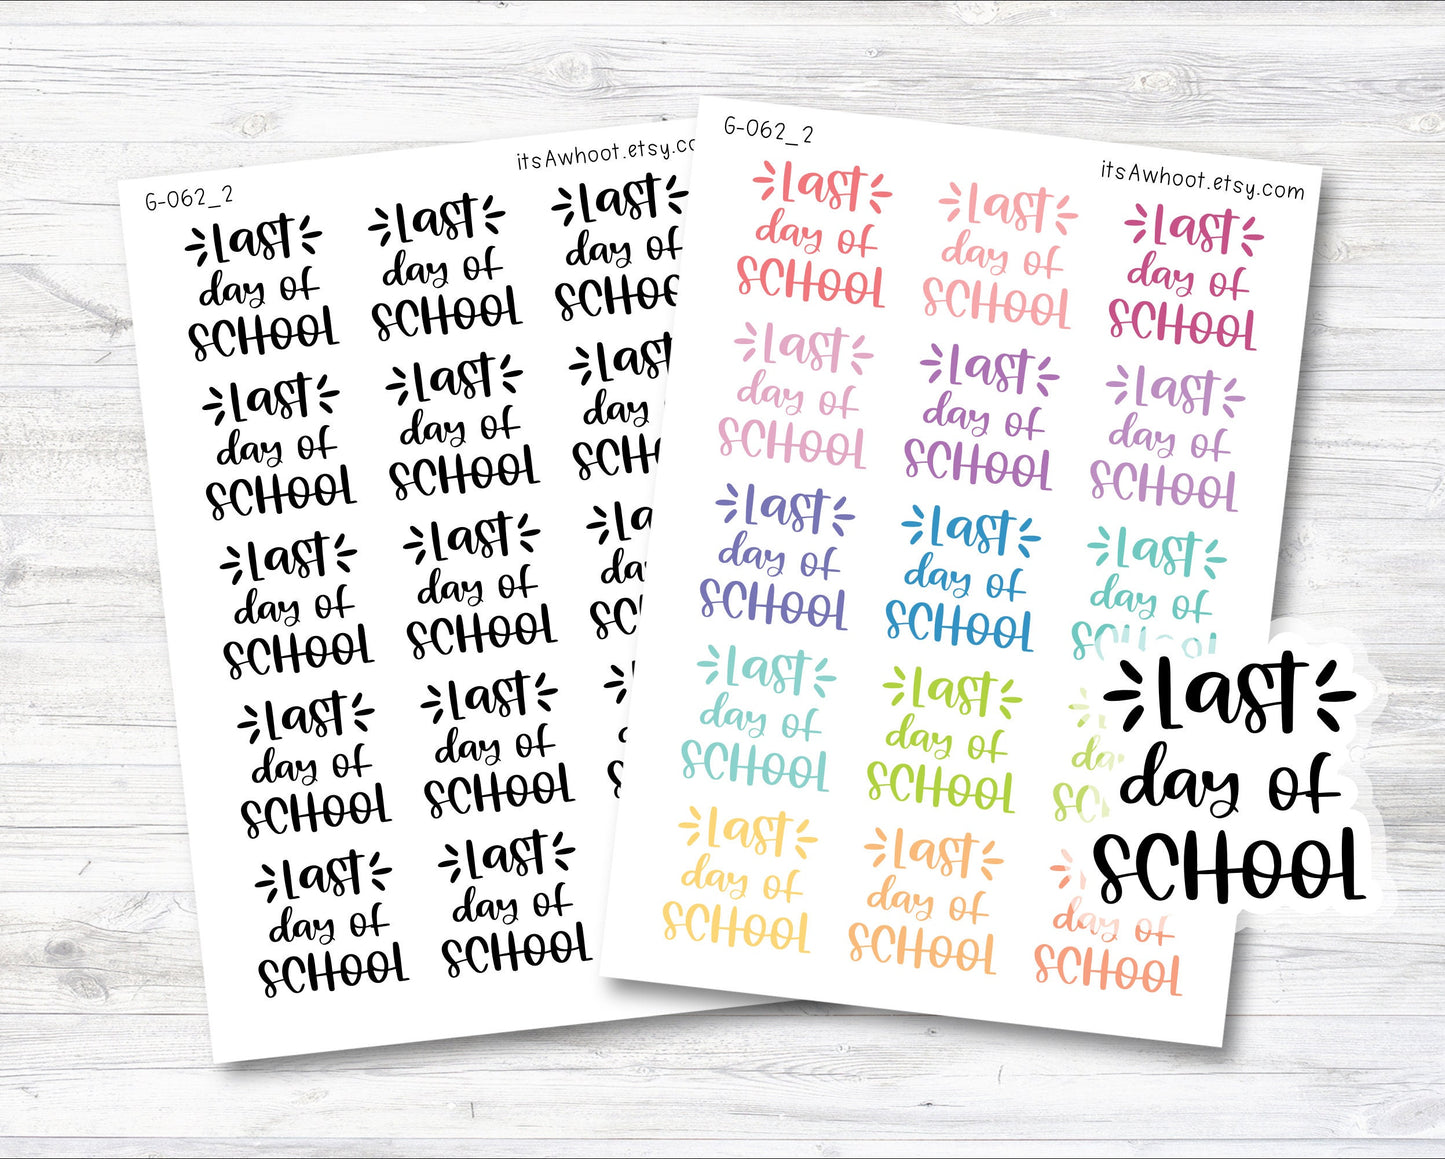 G-062_2
itsAwhoot.etsy.co
Last
day of
SCHOOL
Last
day of
SCHOOL
Last
day of
Last
day of
SCHOOL
Last
day of
SCHOOL
Last
day
Last
day of
SCHOOL
Last
day of
SCHOOL
Last
day of
SCHOOL
Last
day of
SCHOOL
Last
day of
SCHOOL
Last
day of
SCHOOL
G-062_2
itsAwhoot.etsy.com
Last
day of
SCHOOL
Last
day of
SCHOOL
Last
day of
SCHOOL
Last
day of
SCHOOL
Last
day of
SCHOOL
Last
day of
SCHOOL
Last
day of
SCHOOL
Last
day of
SCHOOL
Last
day of
Last
day of
SCHOOL
Last
day of
SCHOOL
Last
day of
SCHOOL
Last
day of
SCHOOL
day of
SCHOOL
Last
day of
SCHOOL